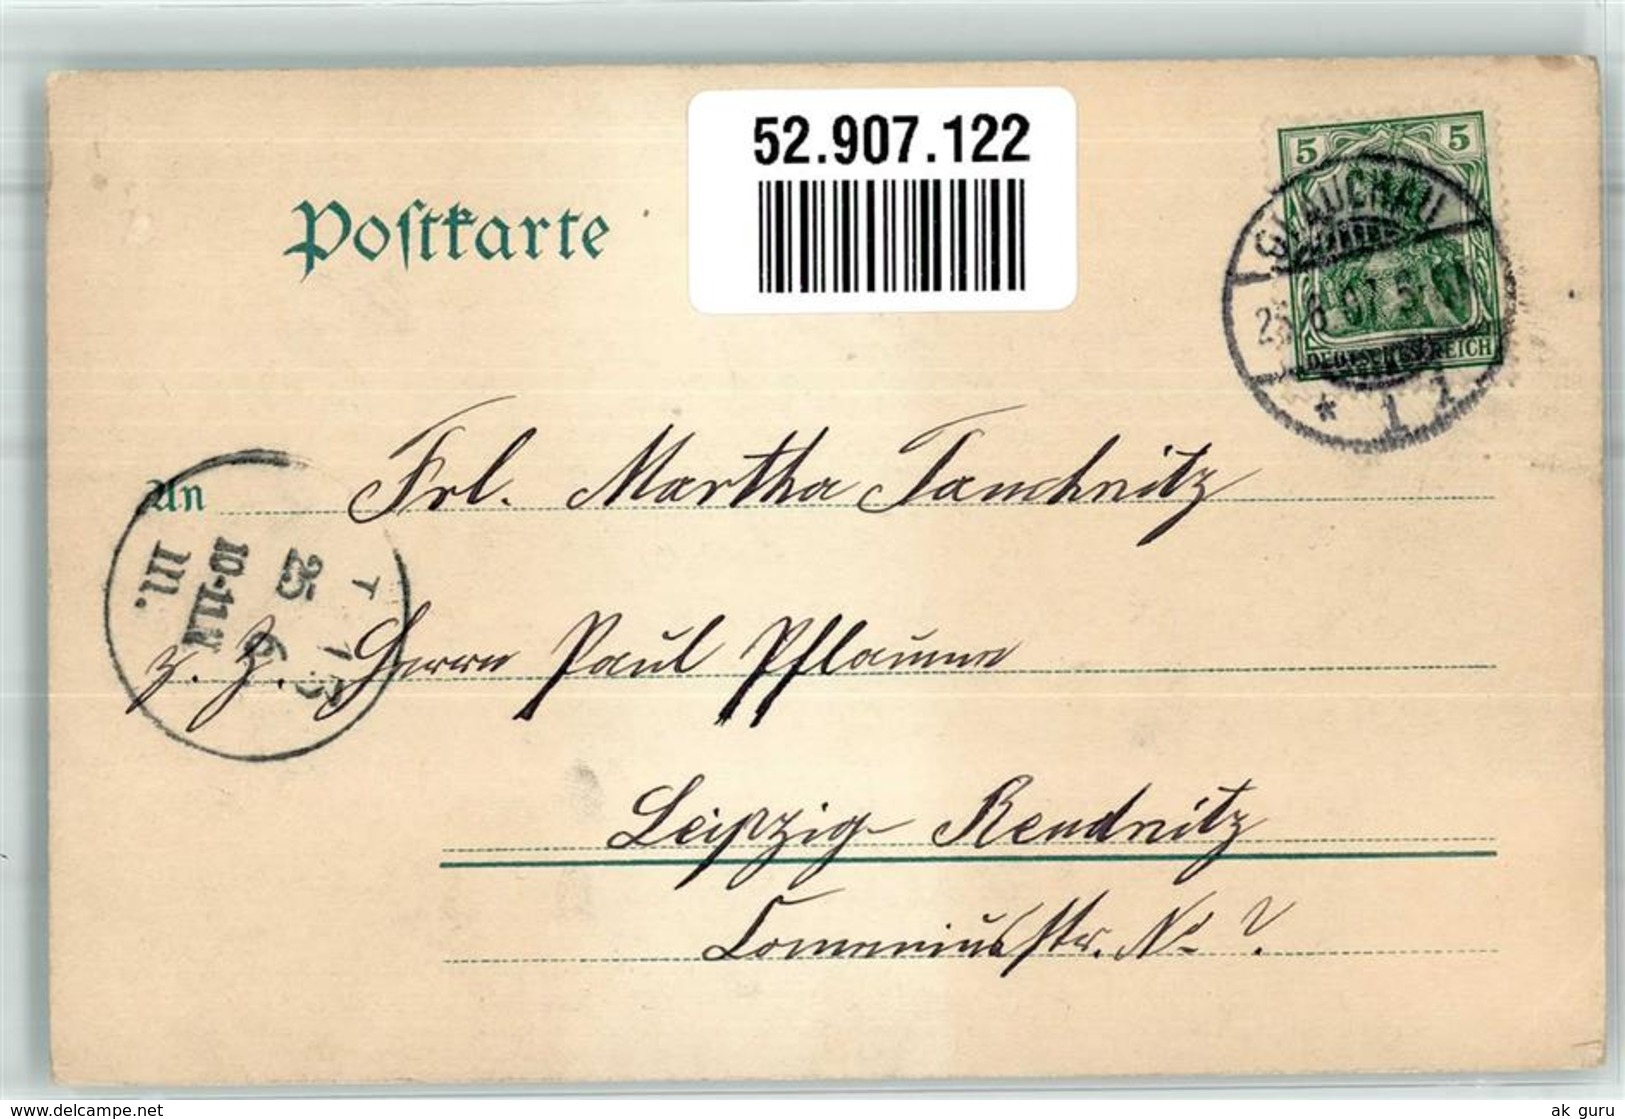 52.907.122
Postkarte
5 5
GLAUCHAU
25.6.07.5-
DEUTSCHES REICH
* 1
An Frl. Martha Tauchnitz
25 6
10-11.N
III.
z. Z. Herrn Paul Pflaume
Leipzig Reudnitz
Comeniusstr. No
delcampe.net
ak guru